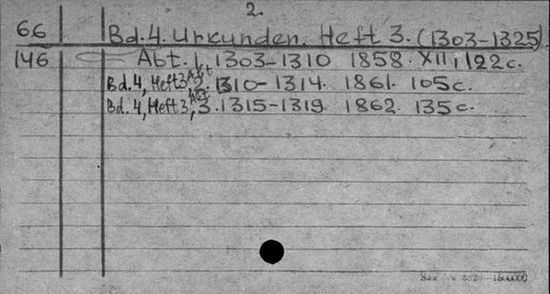 2.
66 Bd.4. Urkunden. Heft 3. (1303-1325)
146 Abt. 1. 1303-1310 1858. XII, 122c.
Bd. 4, Heft 3, Abt. 2. 1310-1314. 1861. 105c.
Bd. 4, Heft 3, Abt. 3. 1315-1319. 1862. 135c.